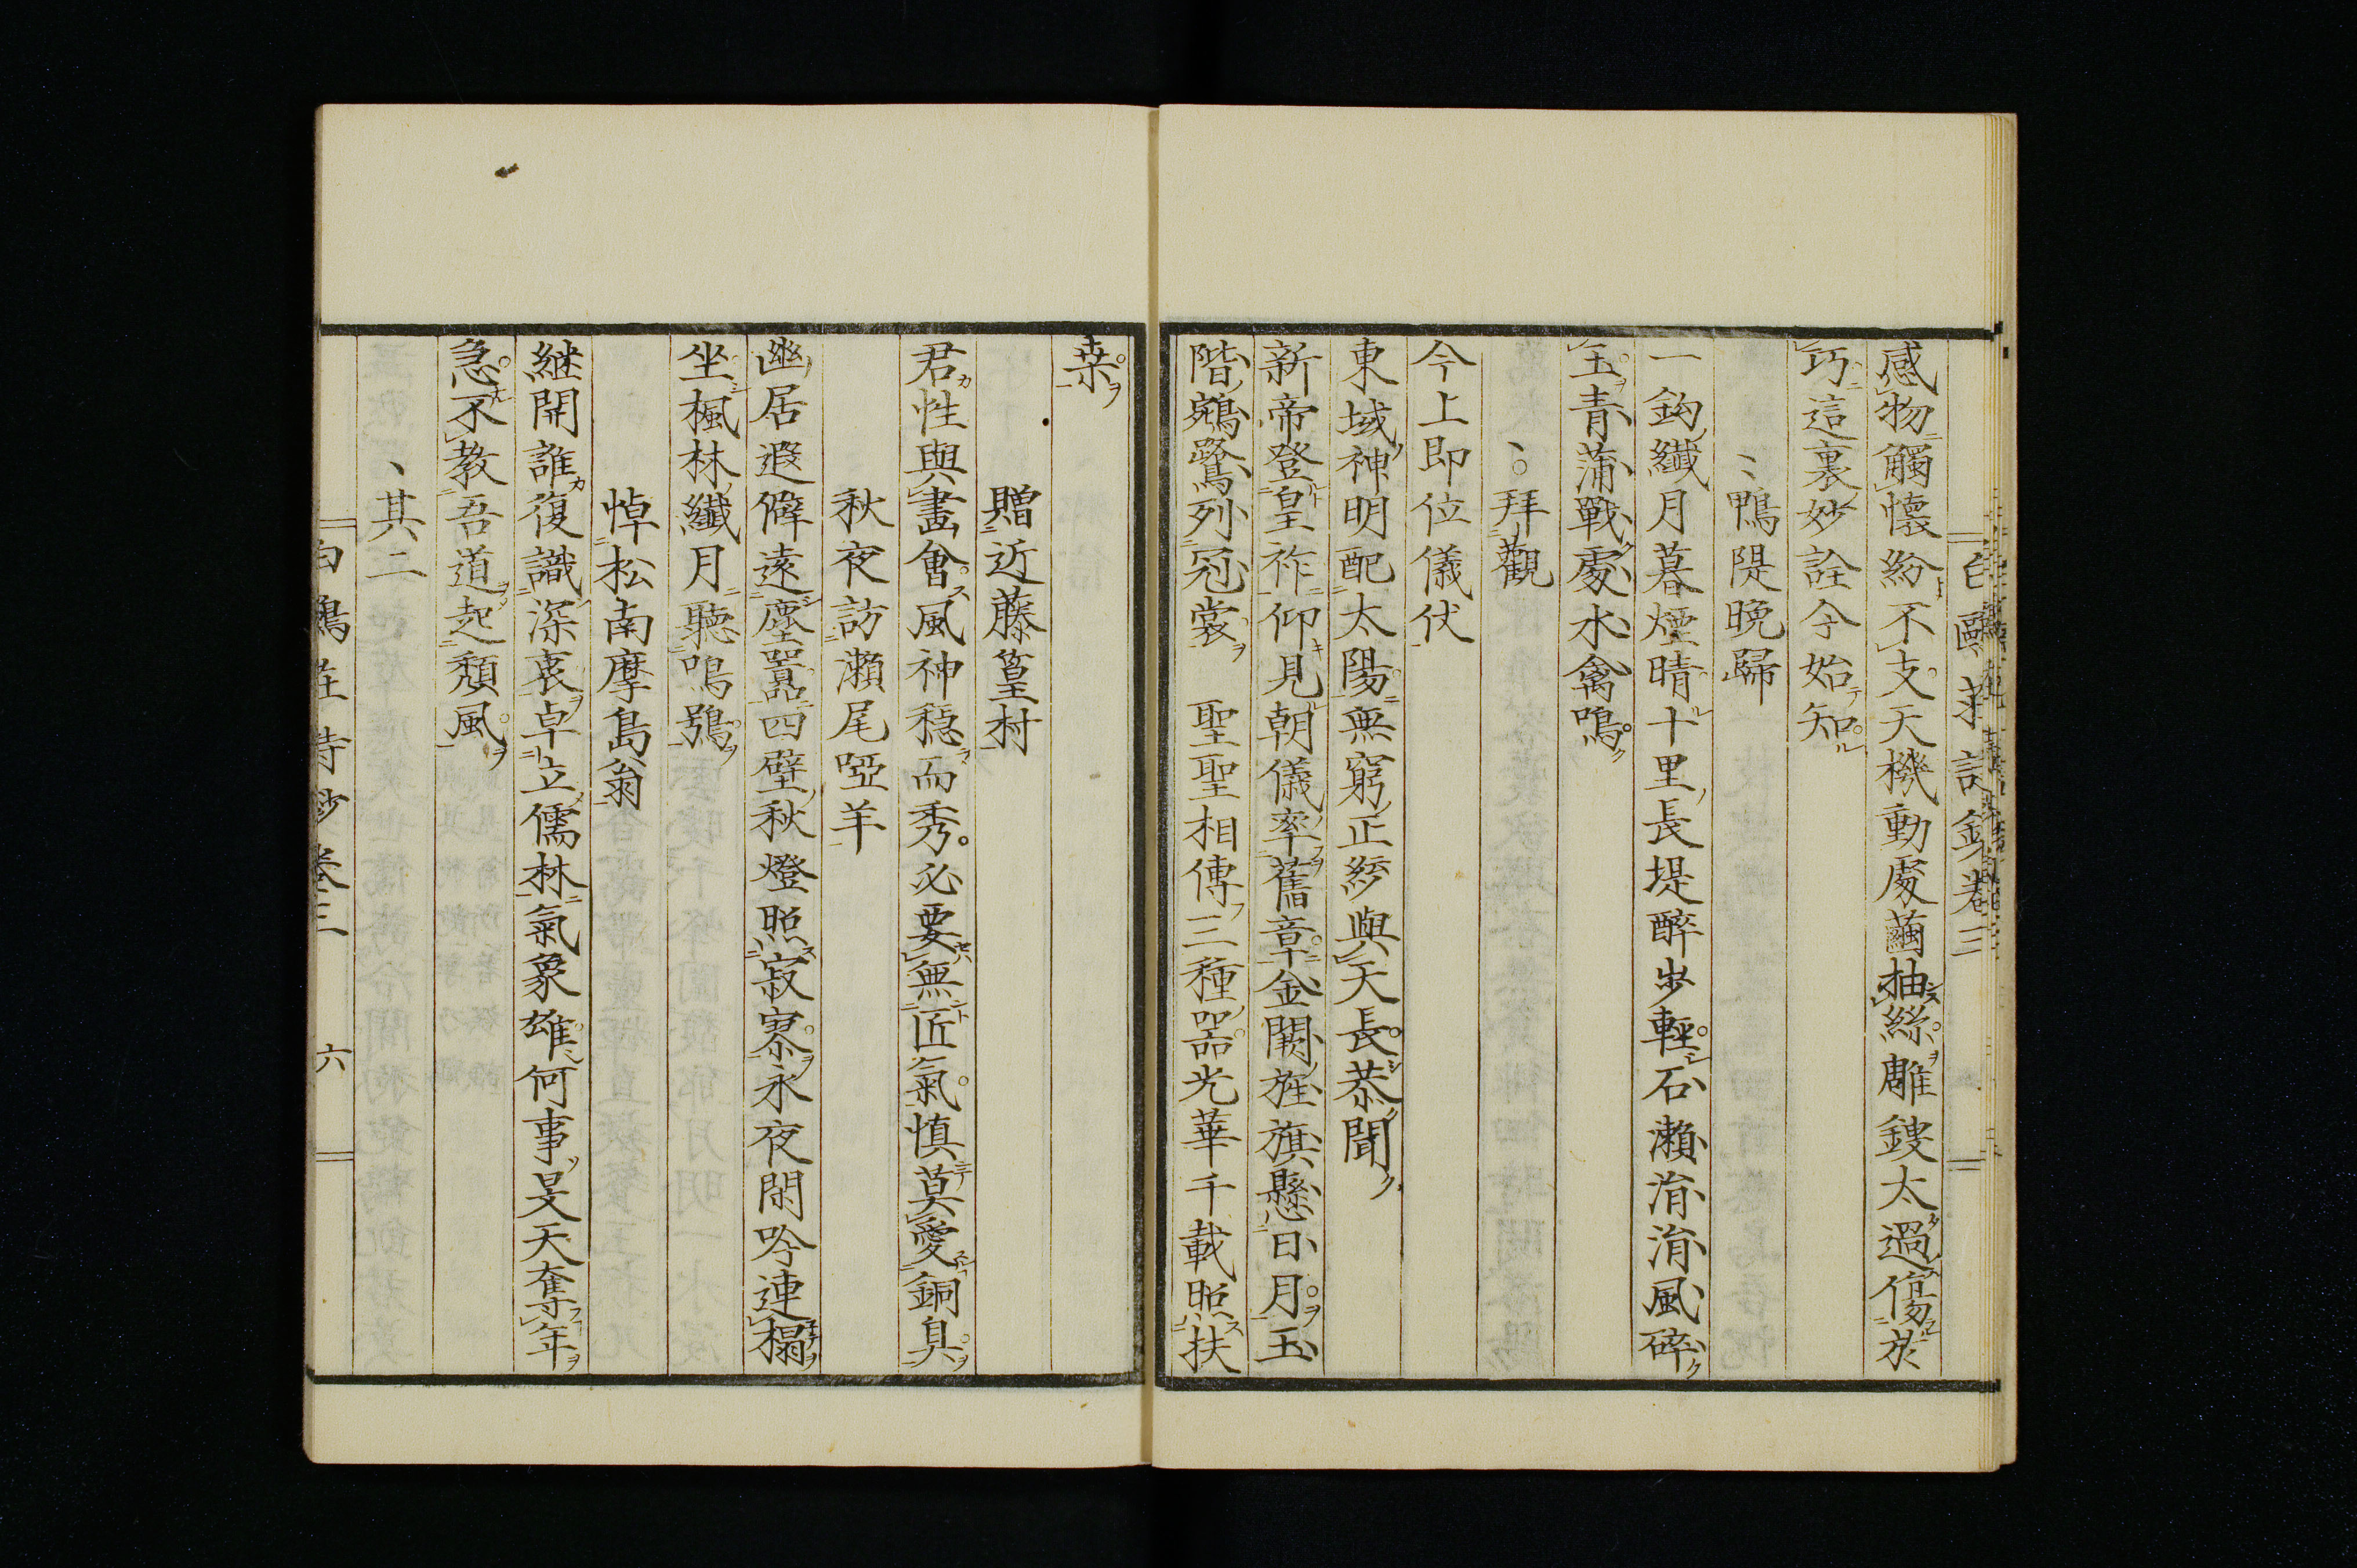 白鷗莊詩鈔卷三
感物觸懷紛不支天機動處繭抽絲雕鎪太過傷於
巧這裏妙詮今始知
鴨隄晩歸
一鈎纖月暮煙晴十里長堤醉步輕石瀨涓涓風碎
玉青蒲戰處水禽鳴
拜觀
今上即位儀伏
東域神明配太陽無窮正統與天長恭聞
新帝登皇祚仰見朝儀率舊章金闕旌旗懸日月玉
階鵷鷺列冠裳　聖聖相傳三種器光華千載照扶
桒
贈近藤篁村
君性與畫會風神穩而秀必要無匠氣慎莫愛銅臭
秋夜訪瀨尾啞羊
幽居遐僻遠塵囂四壁秋燈照寂寥永夜閑吟連榻
坐楓林纖月聽鳴鴞
悼松南摩島翁
継開誰復識深衷卓立儒林氣象雄何事旻天奪年
急不教吾道起頽風
其二
白鷗莊詩鈔卷三　六